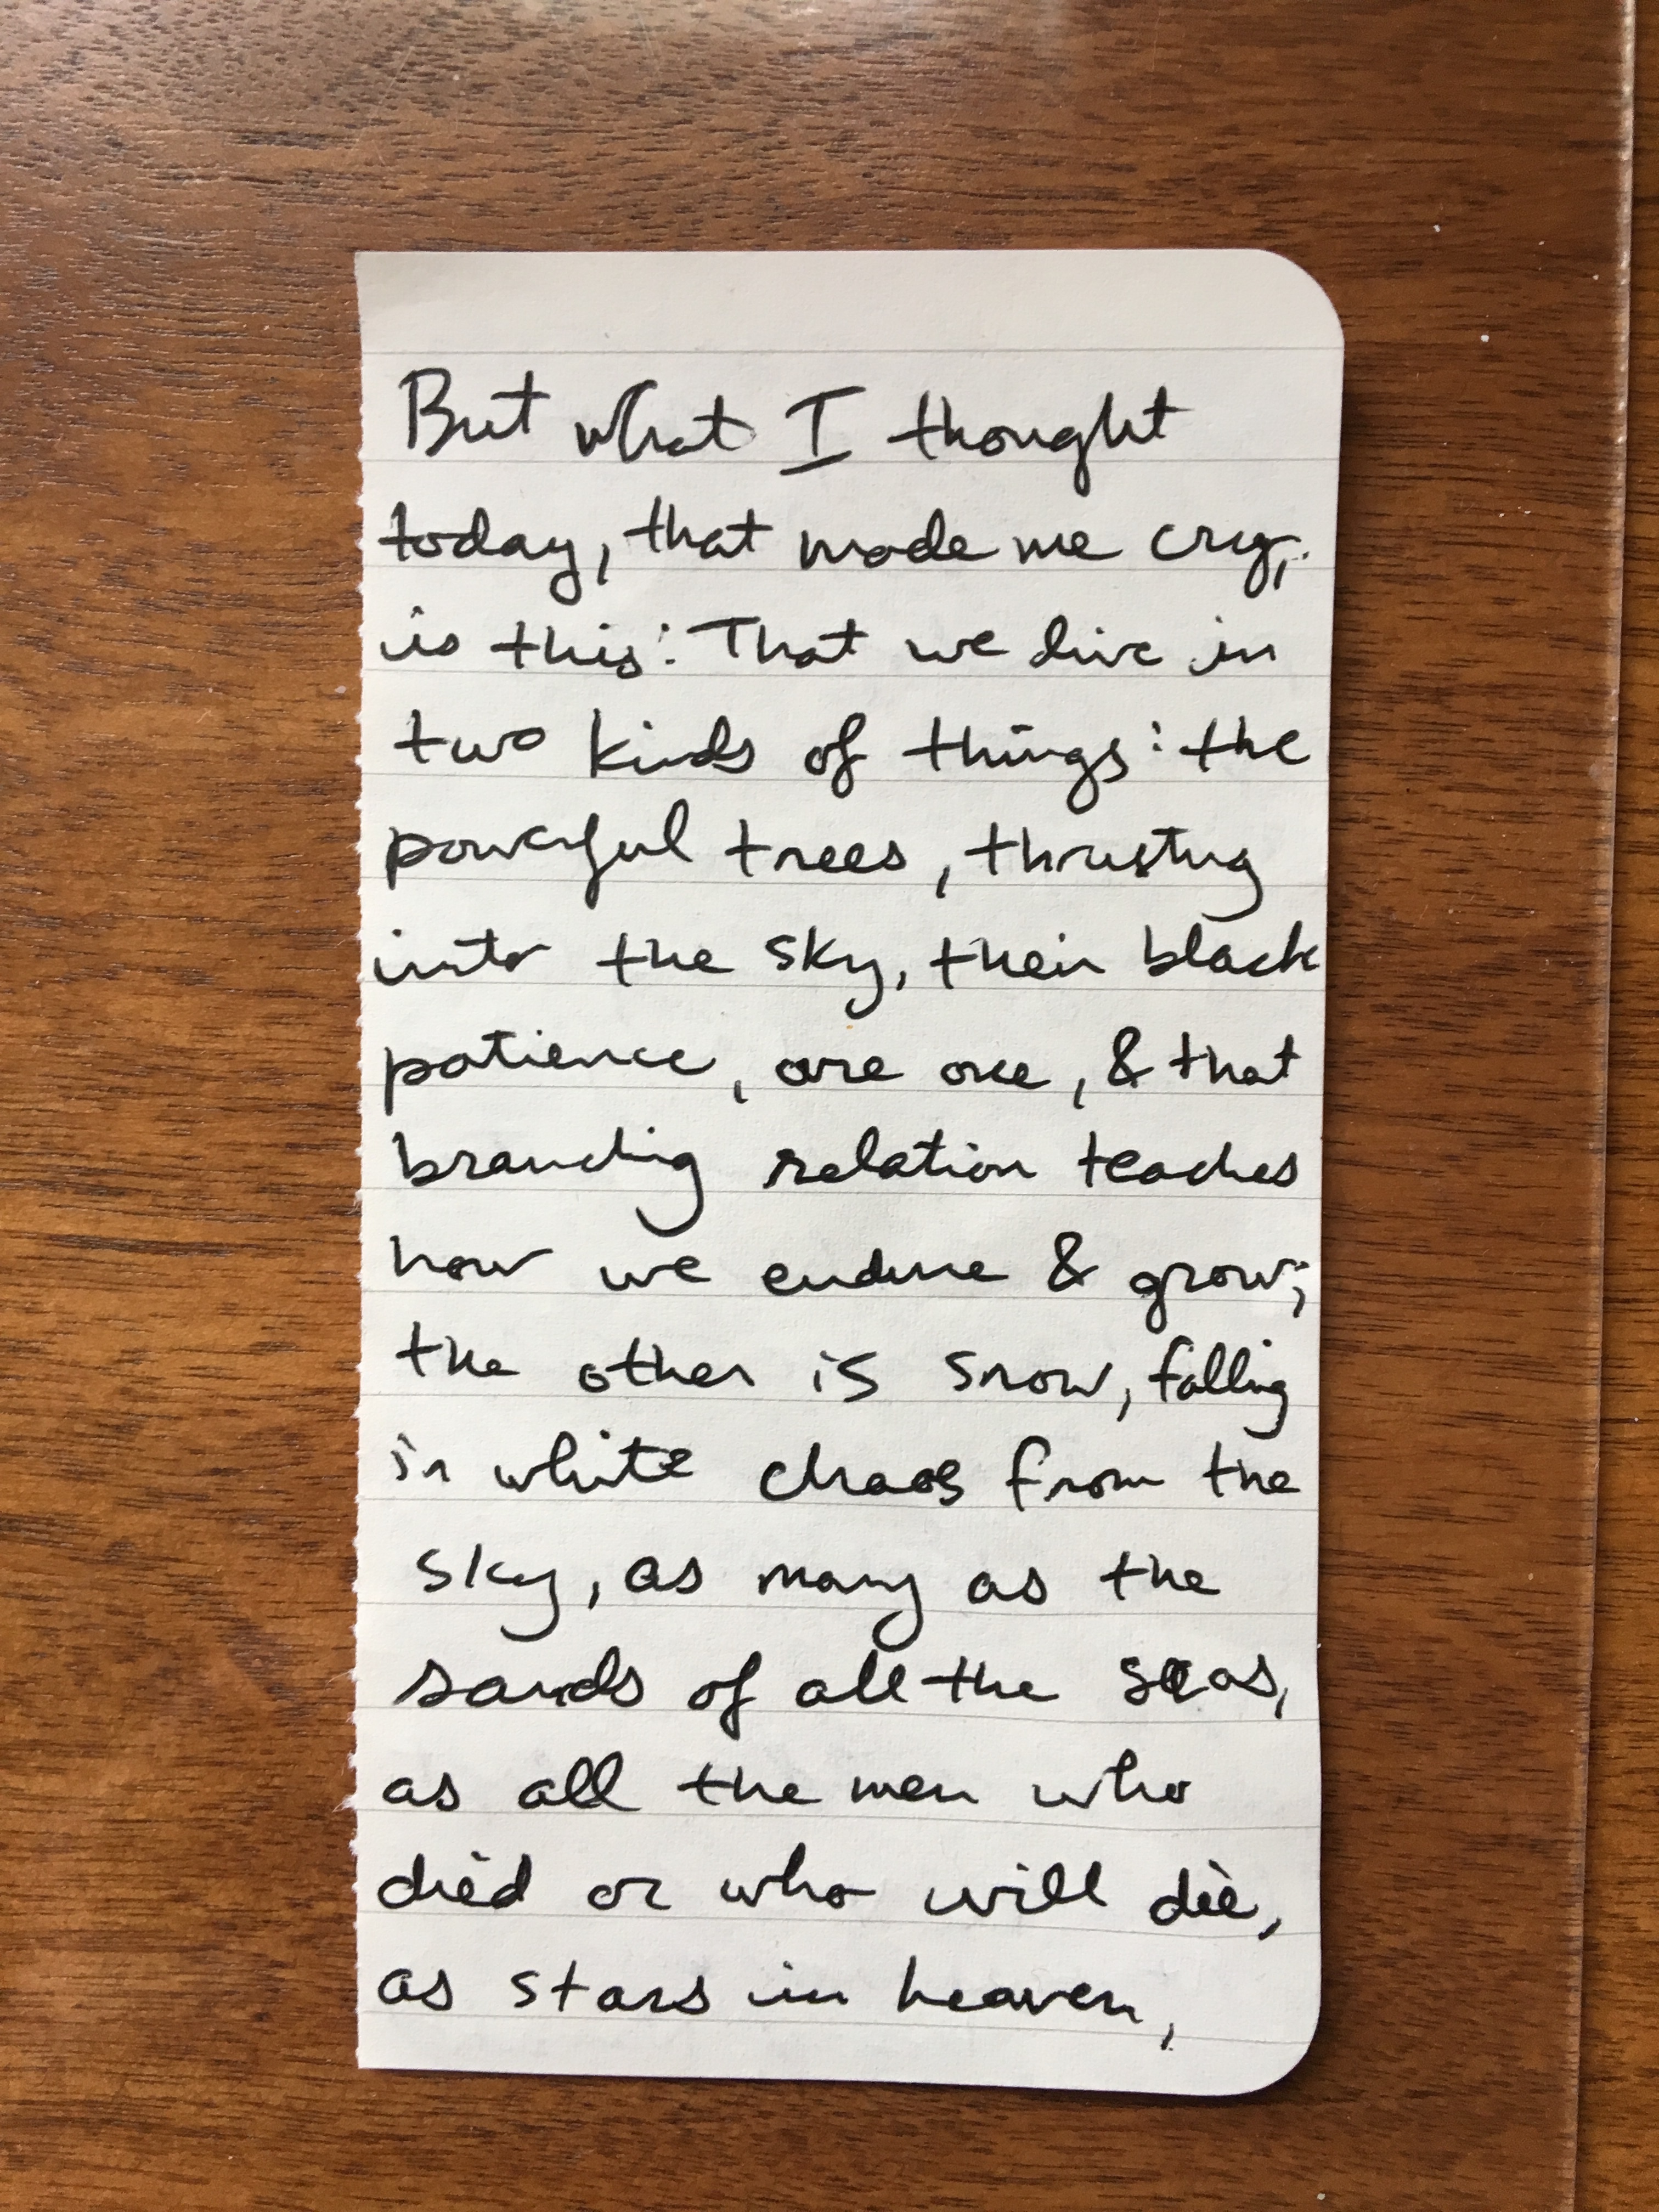 But what I thought
today, that made me cry,
is this: That we live in
two kinds of things: the
powerful trees, thrusting
into the sky, their black
patience, are one, & that
branching relation teaches
how we endure & grow;
the other is snow, falling
in white chaos from the
sky, as many as the
sands of all the seas,
as all the men who
died or who will die,
as stars in heaven,